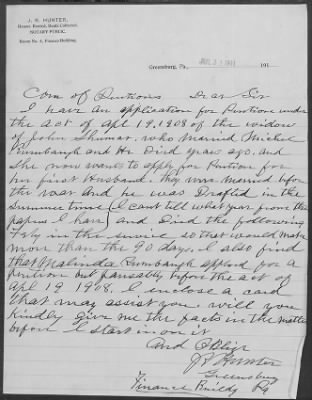 J. R. HUNTER,
Houses Rented, Rents Collected,
NOTARY PUBLIC.
Room No. 4, Finance Building.
Greensburg, Pa., JUL 22 1911 191
Com of Pensions Dear Sir
I have an application for Pensions under
the act of Apl 19, 1908 of the widow
of John Shumar, who married Michel
Rumbaugh and He Died years ago. and
she now wants to apply for Pension for
her first Husband. they was married before
the war and he was Drafted in the
Summer time (I cant tell what year from the
papers I have) and Died the following
Feby in the service so that would make
more than the 90 days. I also find
that Malinda Rumbaugh applied for a
pension but possably before the act of
Apl 19 1908. I inclose a card
that may assist you. will you
kindly give me the facts in the matter
before I start in on it
And Oblige
J R Hunter
Greensburg
Finance Buildg Pa